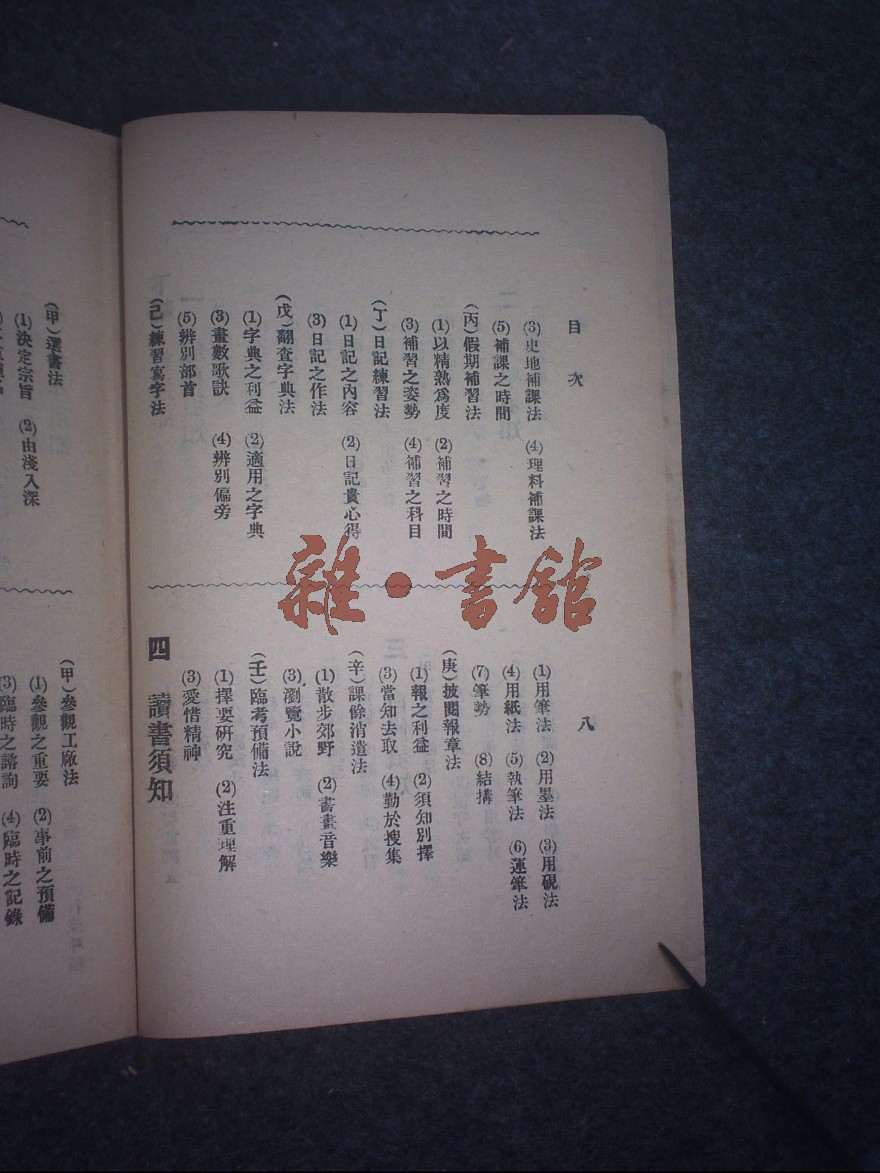 目次
八
(3)史地補課法 (4)理科補課法
(5)補課之時間
(丙)假期補習法
(1)以精熟爲度 (2)補習之時間
(3)補習之姿勢 (4)補習之科目
(丁)日記練習法
(1)日記之內容 (2)日記貴心得
(3)日記之作法
(戊)翻查字典法
(1)字典之利益 (2)適用之字典
(3)畫數歌訣 (4)辨別偏旁
(5)辨別部首
(己)練習寫字法
(1)用筆法 (2)用墨法 (3)用硯法
(4)用紙法 (5)執筆法 (6)運筆法
(7)筆勢 (8)結搆
(庚)披閱報章法
(1)報之利益 (2)須知別擇
(3)當知去取 (4)勤於搜集
(辛)課餘消遣法
(1)散步郊野 (2)書畫音樂
(3)瀏覽小說
(壬)臨考預備法
(1)擇要研究 (2)注重理解
(3)愛惜精神
四 讀書須知
(甲)選書法
(1)決定宗旨 (2)由淺入深
(甲)參觀工廠法
(1)參觀之重要 (2)事前之預備
(3)臨時之諮詢 (4)臨時之記錄
雜·書館